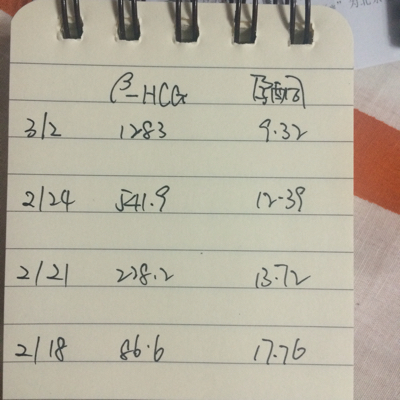 β-HCG 孕酮
3/2 1283 9.32
2/24 541.9 12.39
2/21 228.2 13.72
2/18 86.6 17.76